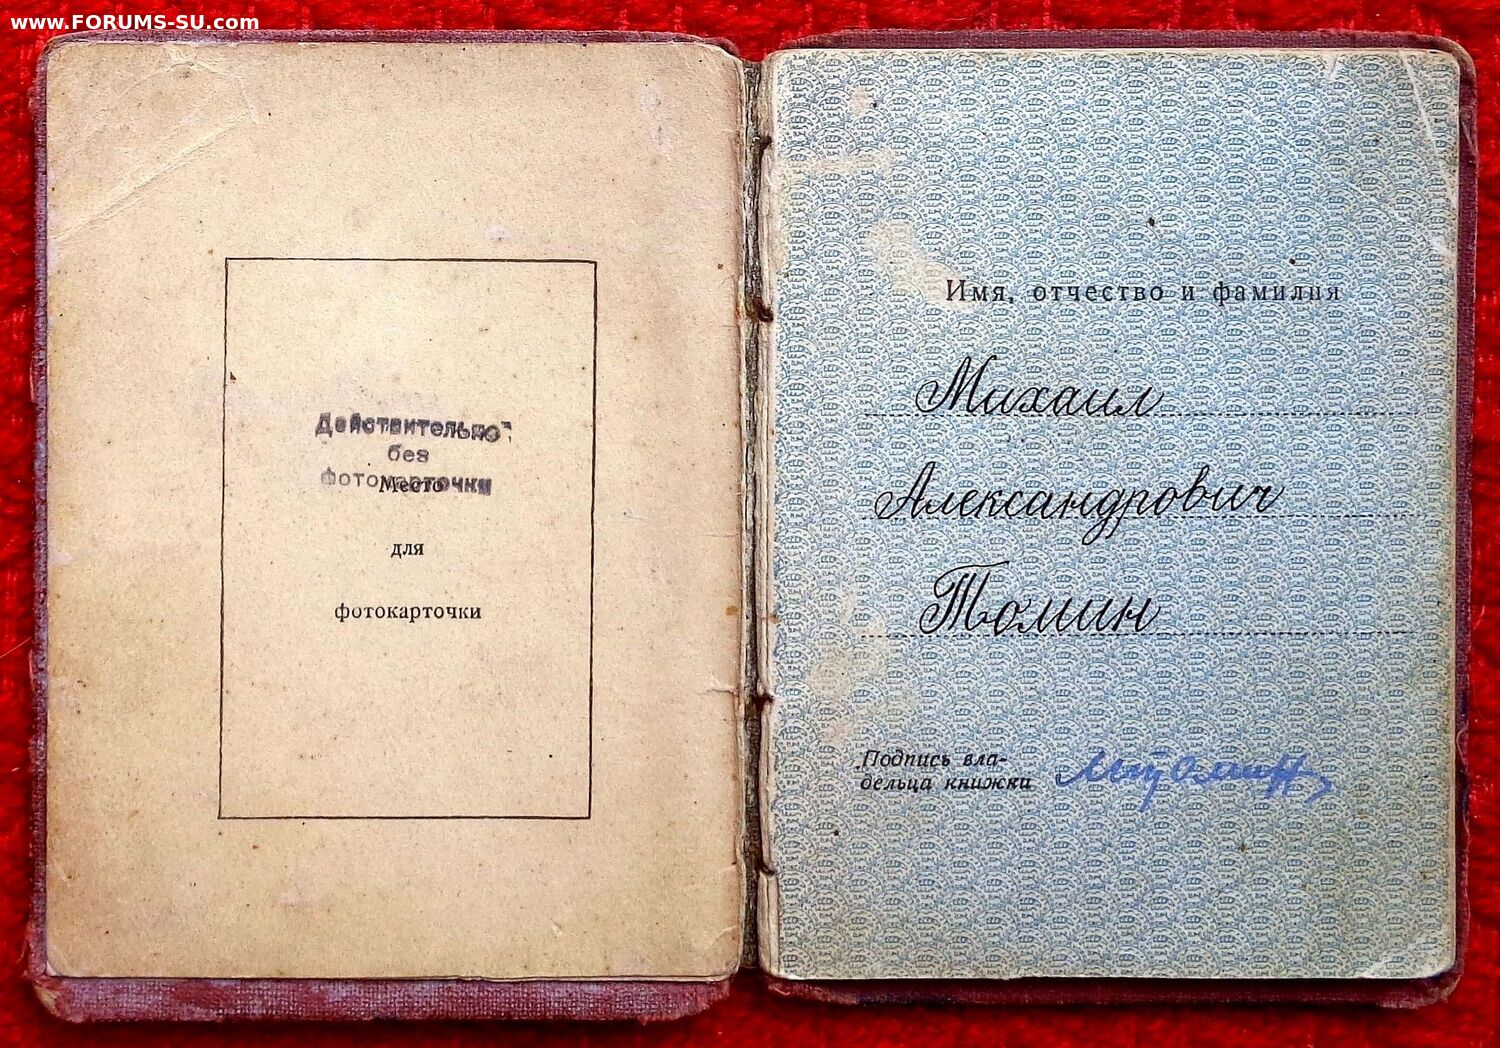 www.FORUMS-SU.com
Действительно
без
фотокарточки
Место
для
фотокарточки
Имя, отчество и фамилия
Михаил
Александрович
Томин
Подпись вла-
дельца книжки